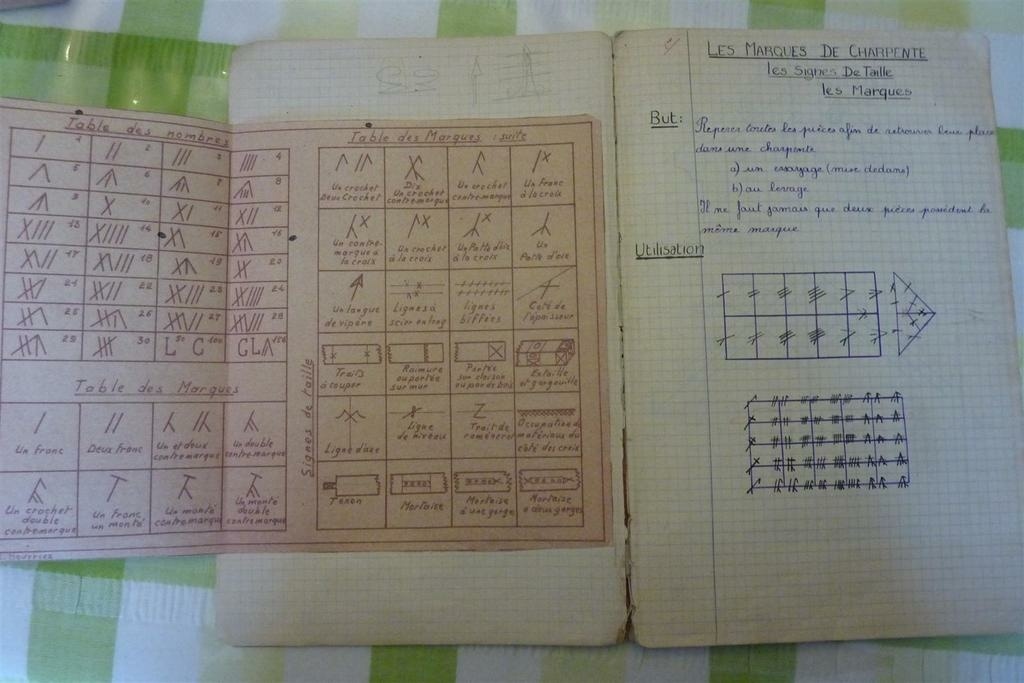 Table des nombres
1 2 3 4
5 6 7 8
9 10 11 12
13 14 15 16
17 18 19 20
21 22 23 24
25 26 27 28
29 30 L 50 C 100 CLΛ 156
Table des Marques
Un franc
Deux franc
Un et deux
contremarque
Un double
contremarque
Un crochet
double
contremarque
Un franc
un monté
Un monté
contremarque
Un monté
double
contremarque
Table des Marques : suite
Un crochet
Deux Crochet
Dix
Un crochet
contremarque
Un crochet
contremarque
Un franc
à la croix
Un contre-
marque à
la croix
Un crochet
à la croix
Un Patte d'oie
à la croix
Un
Patte d'oie
Un langue
de vipère
Lignes à
scier en long
lignes
biffées
Coté de
l'épaisseur
Signes de taille
Traits
à couper
Rainure
ou portée
sur mur
Portée
sur cloison
ou pan de bois
Entaille
et gargouille
Ligne d'axe
Ligne
de niveau
Trait de
ramèneret
Occupation de
matériaux du
côté des croix
Tenon
Mortaise
Mortaise
à une gorge
Mortaise
à deux gorges
LES MARQUES DE CHARPENTE
les Signes De Taille
les Marques
But:
Reperer toutes les pièces afin de retrouver leur place
dans une charpente
a) un essayage (mise dedans)
b) au levage
Il ne faut jamais que deux pièces possèdent la
même marque
Utilisation